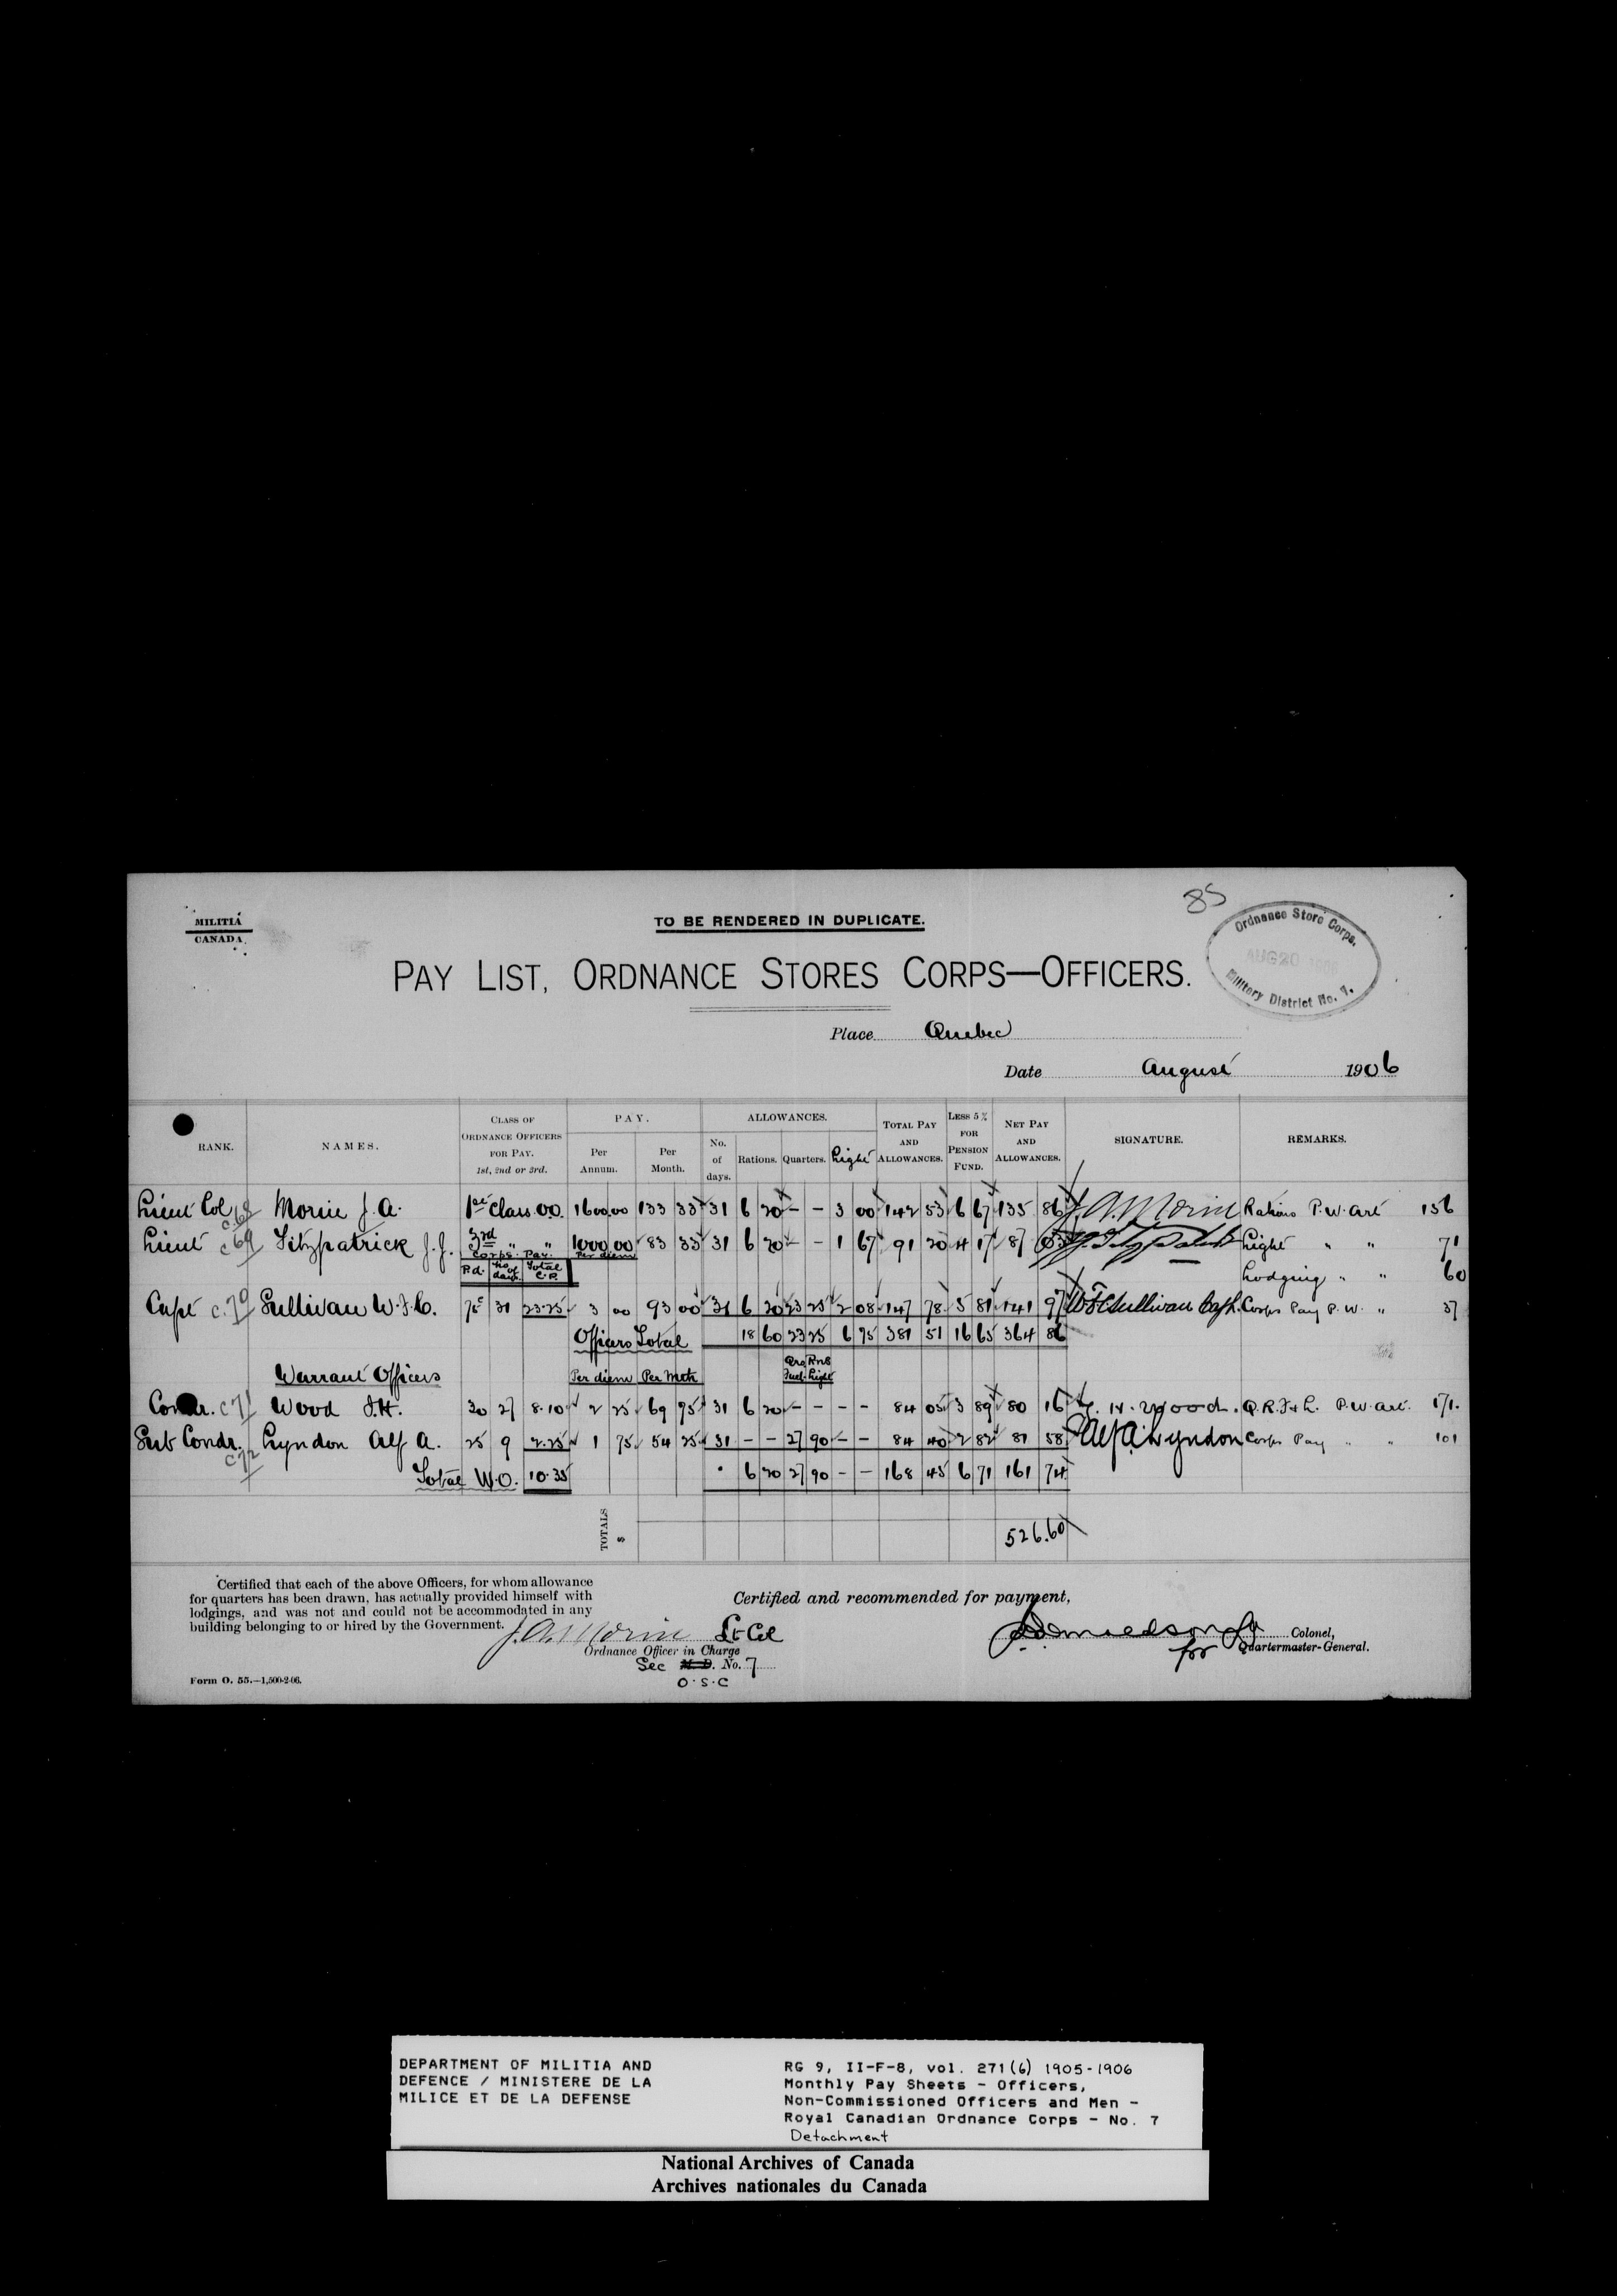 85
MILITIA
CANADA.
TO BE RENDERED IN DUPLICATE.
Ordnance Store Corps.
AUG 20 1906
Military District No. 7.
PAY LIST, ORDNANCE STORES CORPS—OFFICERS.
Place Quebec
Date August 1906
RANK. NAMES. CLASS OF ORDNANCE OFFICERS FOR PAY. 1st, 2nd or 3rd. PAY. Per Annum. Per Month. ALLOWANCES. No. of days. Rations. Quarters. Light TOTAL PAY AND ALLOWANCES. LESS 5% FOR PENSION FUND. NET PAY AND ALLOWANCES. SIGNATURE. REMARKS.
Lieut Col c.68 Morin J. A. 1st Class O.O. 1600.00 133 33 31 6 20 – – 3 00 142 53 6 67 135 86 J. A. Morin Rations P.W. Art 156
Lieut c 69 Fitzpatrick J. J. 3rd " " 1000 00 83 33 31 6 20 – – 1 67 91 20 4 17 87 03 J.J. Fitzpatrick Light " " 71
Corps Pay. Per diem
Rd. No of days Total C.P. Lodging " " 60
Capt c.70 Sullivan W. F. C. 75c 31 23.25 3 00 93 00 31 6 20 23 25 2 08 147 78 5 81 141 97 W F C Sullivan Capt. Corps Pay P.W. " 37
Officers Total 18 60 23 25 6 75 381 51 16 65 364 86
Warrant Officers Per diem Per Mth Qrs Rns Fuel Light
Condr. c 71 Wood F. H. 30 27 8.10 2 25 69 75 31 6 20 – – – – 84 05 3 89 80 16 F. H. Wood. Q.R.F & L. P.W. Art. 171.
Sub Condr. c 72 Lyndon Alf A. 25 9 2.25 1 75 54 25 31 – – 27 90 – – 84 40 2 82 81 58 Alf A Lyndon Corps Pay " " 101
Total W.O. 10.35 6 20 27 90 – – 168 45 6 71 161 74
TOTALS $ 526.60
Certified that each of the above Officers, for whom allowance
for quarters has been drawn, has actually provided himself with
lodgings, and was not and could not be accommodated in any
building belonging to or hired by the Government.
J. A. Morin Lt Col
Ordnance Officer in Charge
Sec M. D. No. 7
O.S.C
Certified and recommended for payment,
Colonel,
for Quartermaster-General.
Form O. 55.—1,500-2-06.
DEPARTMENT OF MILITIA AND
DEFENCE / MINISTERE DE LA
MILICE ET DE LA DEFENSE
RG 9, II-F-8, vol. 271(6) 1905-1906
Monthly Pay Sheets - Officers,
Non-Commissioned Officers and Men -
Royal Canadian Ordnance Corps - No. 7
Detachment
National Archives of Canada
Archives nationales du Canada